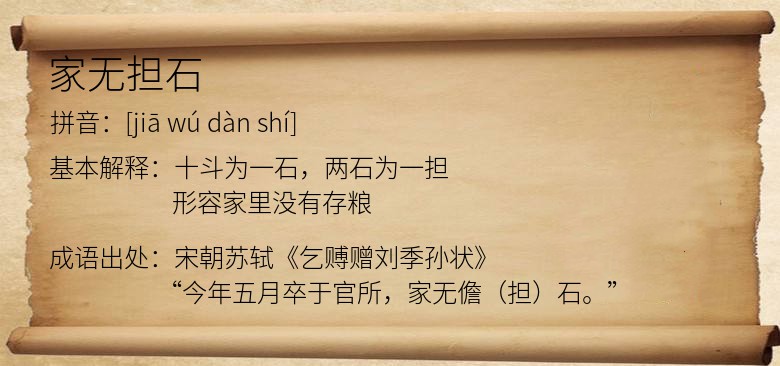 家无担石
拼音：[jiā wú dàn shí]
基本解释：十斗为一石，两石为一担
形容家里没有存粮
成语出处：宋朝苏轼《乞赙赠刘季孙状》
“今年五月卒于官所，家无儋（担）石。”